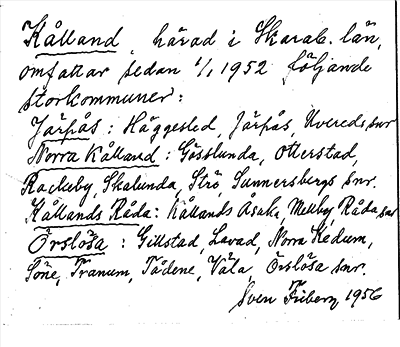 Kålland, härad i Skarab. län,
omfattar sedan 1/1 1952 följande
storkommuner:
Järpås: Häggesled, Järpås, Uvereds snr
Norra Kålland: Gösslunda, Otterstad,
Rackeby, Skalunda, Strö, Sunnersbergs snr.
Kållands Råda: Kållands Åsaka, Mellby, Råda snr
Örslösa: Gillstad, Lavad, Norra Kedum,
Söne, Tranum, Tådene, Väla, Örslösa snr.
Sven Friberg 1956